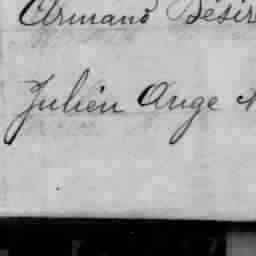 Armand Désir
Julien Ange